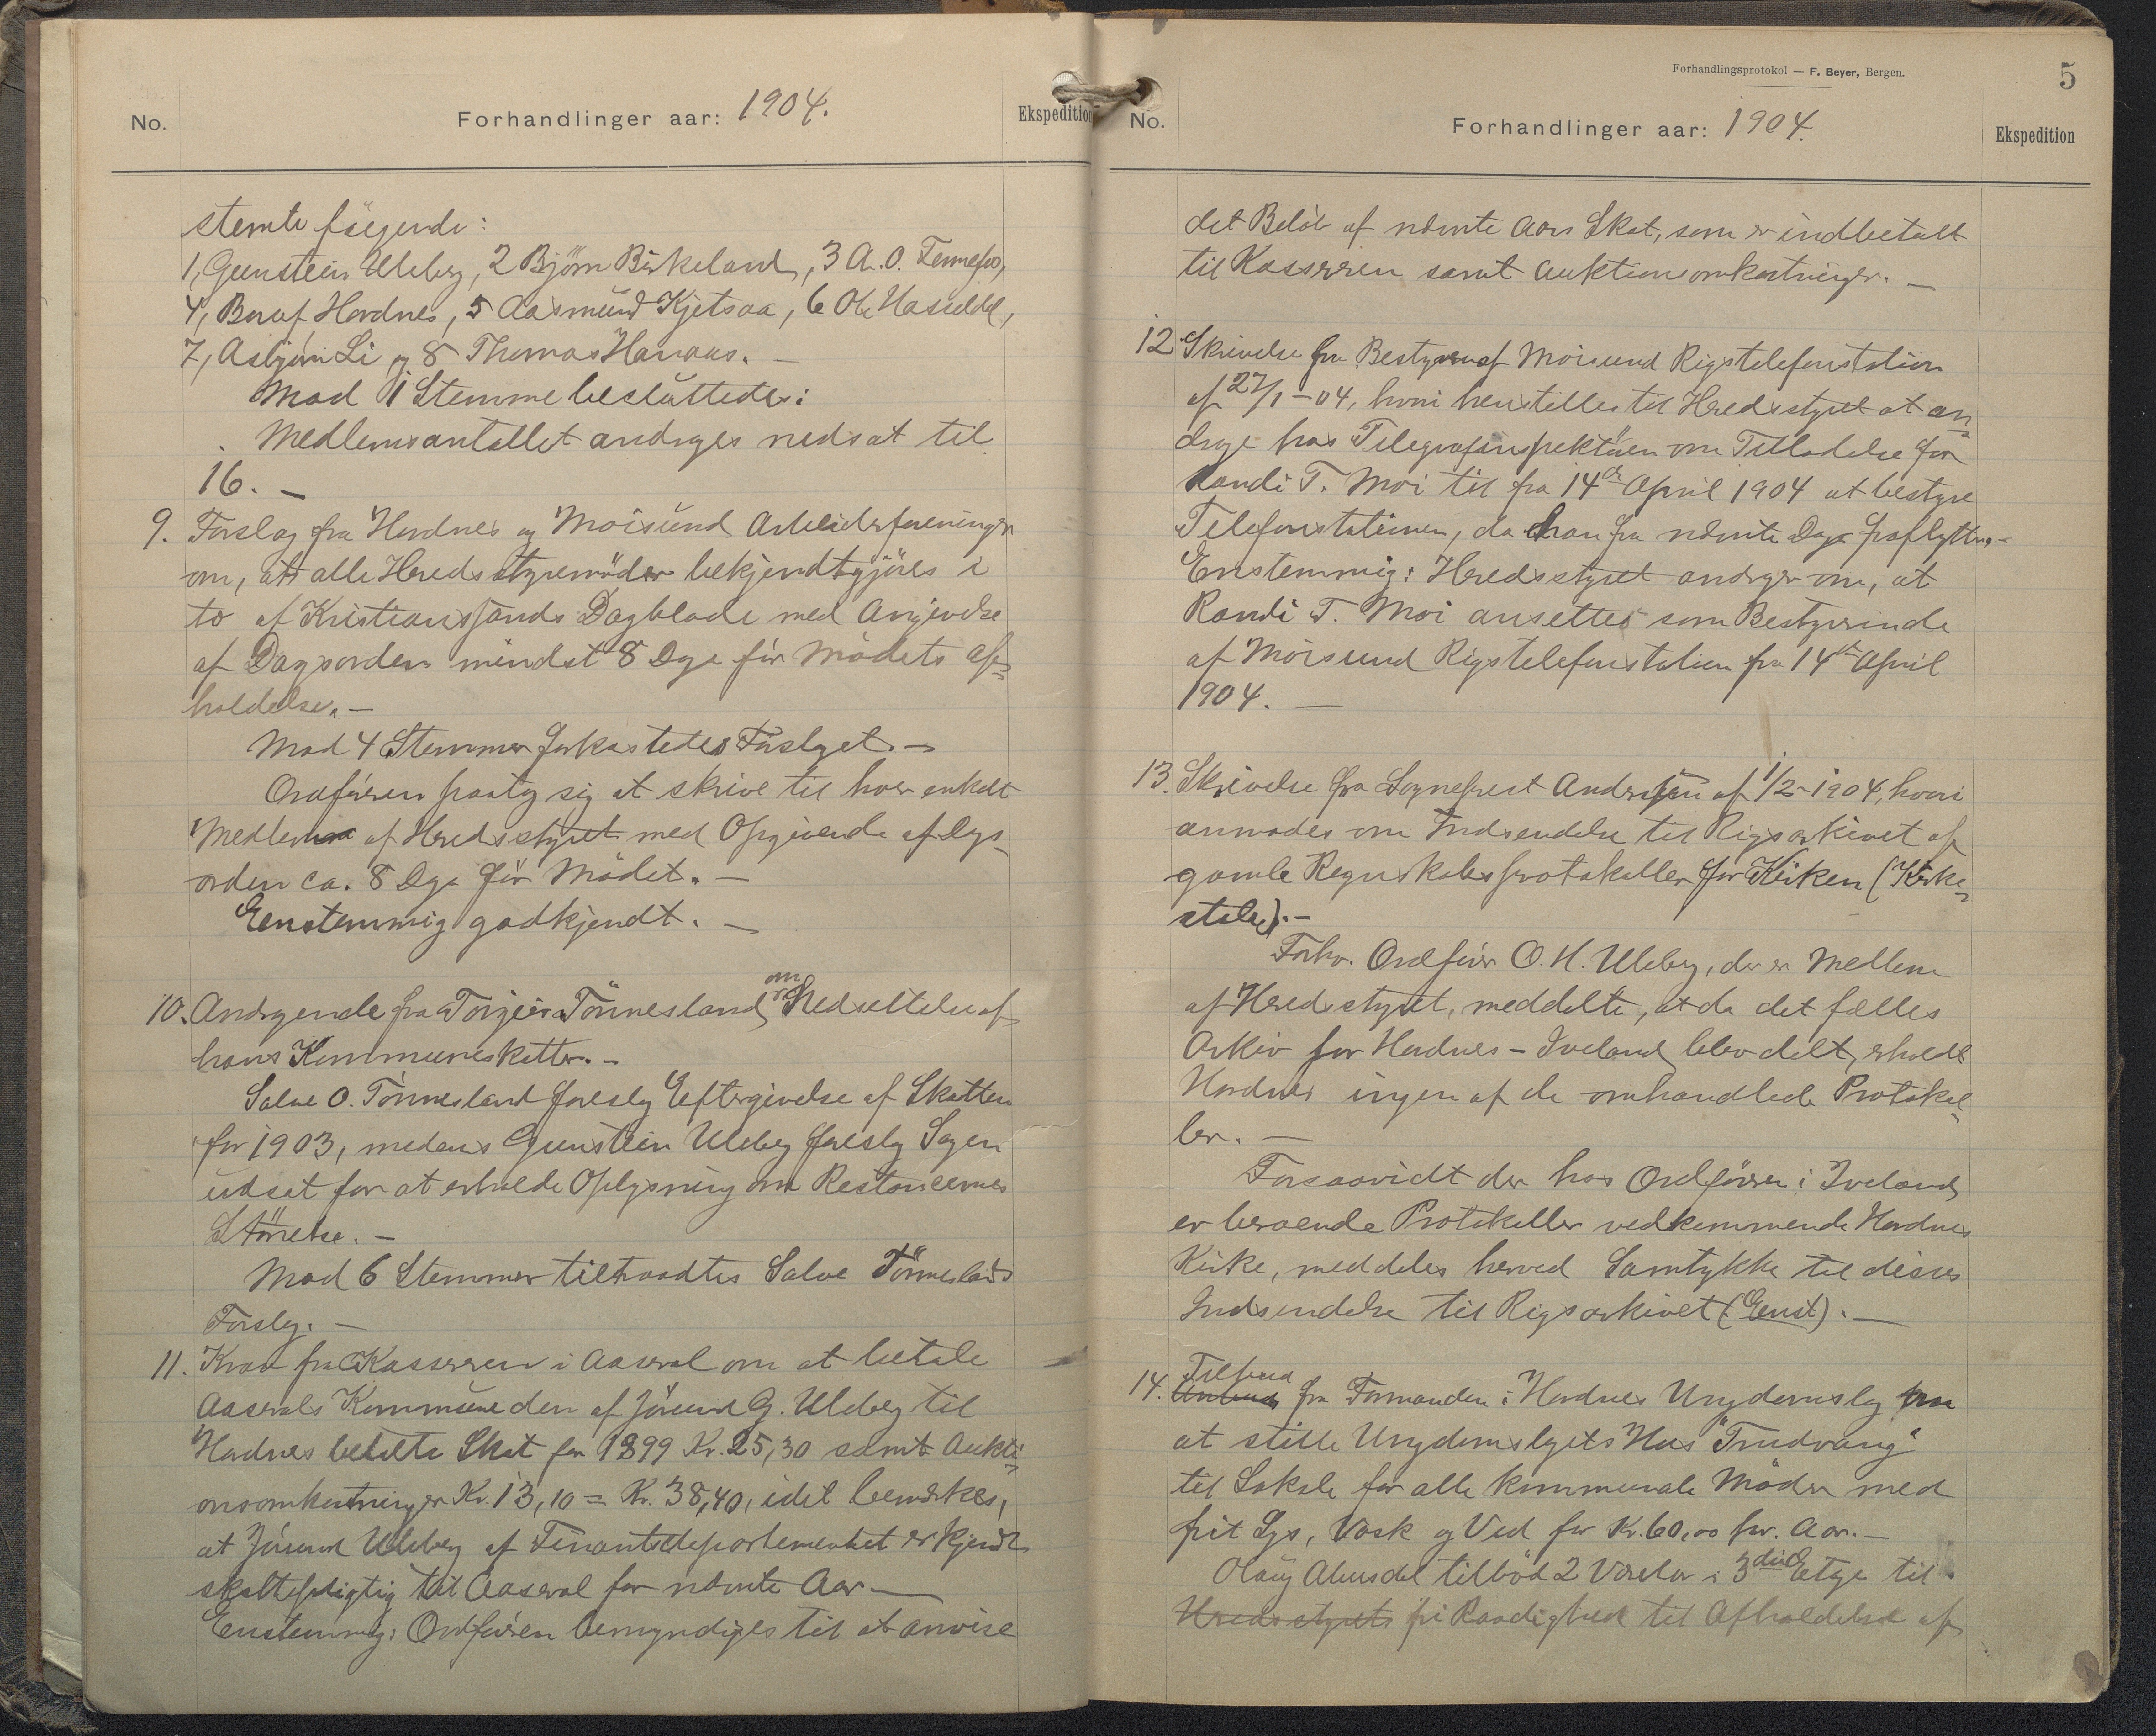 No.
Forhandlinger aar: 1904.
Ekspedition
stemte følgende:
1, Gunstein Uleberg, 2 Bjørn Birkeland, 3 A. O. Fennefos,
4, Hordnes, 5 Aasmund Kjetsaa, 6 Ole Hasseldal,
7, Asbjørn Li og 8 Thomas Hanaas. —
Mod 1 Stemme besluttedes:
Medlemsantallet andrages nedsat til
16. —
9. Forslag fra Hordnes og Moisund Arbeiderforeninger
om, at alle Heredsstyremøder bekjendtgjøres i
to af Kristianssands Dagblade med Angivelse
af Dagsorden mindst 8 Dage før Mødets Af=
holdelse. —
Mod 4 Stemmer forkastedes Forslaget. —
Ordføreren paatog sig at skrive til hver enkelt
Medlem af Heredsstyret med Opgivende af Dags-
orden ca. 8 Dage før Mødet. —
Eenstemmig godkjendt. —
10. Andragende fra Torgeir Tønnesland om Nedsettelse af
hans Kommuneskatter. —
Salve O. Tønnesland foreslog Eftergivelse af Skatten
for 1903, medens Gunstein Uleberg foreslog Sagen
udsat for at erholde Oplysning om Restancernes
Størrelse. —
Mod 6 Stemmer tiltraadtes Salve Tønneslands
Forslag. —
11. Krav fra Kassereren i Aaseral om at betale
Aaserals Kommune den af Jørund G. Uleberg til
Hordnes betalte Skat for 1899 Kr. 25,30 samt Aukti=
onsomkostninger Kr. 13,10 = Kr. 38,40, idet bemærkes,
at Jørund Uleberg af Finantsdepartementet er kjendt
skattepligtig til Aaseral for nævnte Aar —
Enstemmig: Ordføreren bemyndiges til at anvise
Forhandlingsprotokol — F. Beyer, Bergen.
5
No.
Forhandlinger aar: 1904.
Ekspedition
det Beløb af nævnte Aars Skat, som er indbetalt
til Kassereren samt Auktionsomkostninger. —
12 Skrivelse fra Bestyreren af Moisund Rigstelefonstation
af 27/1-04, hvori henstilles til Heredsstyret at an=
drage hos Telegrafinspektøren om Tilladelse for
Randi T. Moi til fra 14de April 1904 at bestyre
Telefonstationen, da han fra nævnte Dage fraflytter. -
Enstemmig: Heredsstyret andrager om, at
Randi T. Moi ansettes som Bestyrerinde
af Moisund Rigstelefonstation fra 14de April
1904. —
13. Skrivelse fra Sogneprest Andersen af 1/2-1904, hvori
anmodes om Indsendelse til Rigsarkivet af
gamle Regnskabsprotokoller for Kirken (Kirke=
stolen). —
Forhv. Ordfører O. H. Uleberg, der er Medlem
af Heredsstyret, meddelte, at da det fælles
Arkiv for Hordnes - Iveland blev delt, erholdt
Hordnes ingen af de omhandlede Protokol=
ler. —
Forsaavidt der hos Ordføreren i Iveland
er beroende Protokoller vedkommende Hordnes
Kirke, meddeles herved Samtykke til disses
Indsendelse til Rigsarkivet (Eenst). —
14. Tilbud fra Formanden i Hordnes Ungdomslag
at stille Ungdomslagets Hus "Trudvang"
til Lokale for alle kommunale Møder med
frit Lys, Vask og Ved for Kr. 60,00 pr. Aar. —
Olav tilbød 2 Værelser i 3die Etage til
Heredsstyrets fri Raadighed til Afholdelse af